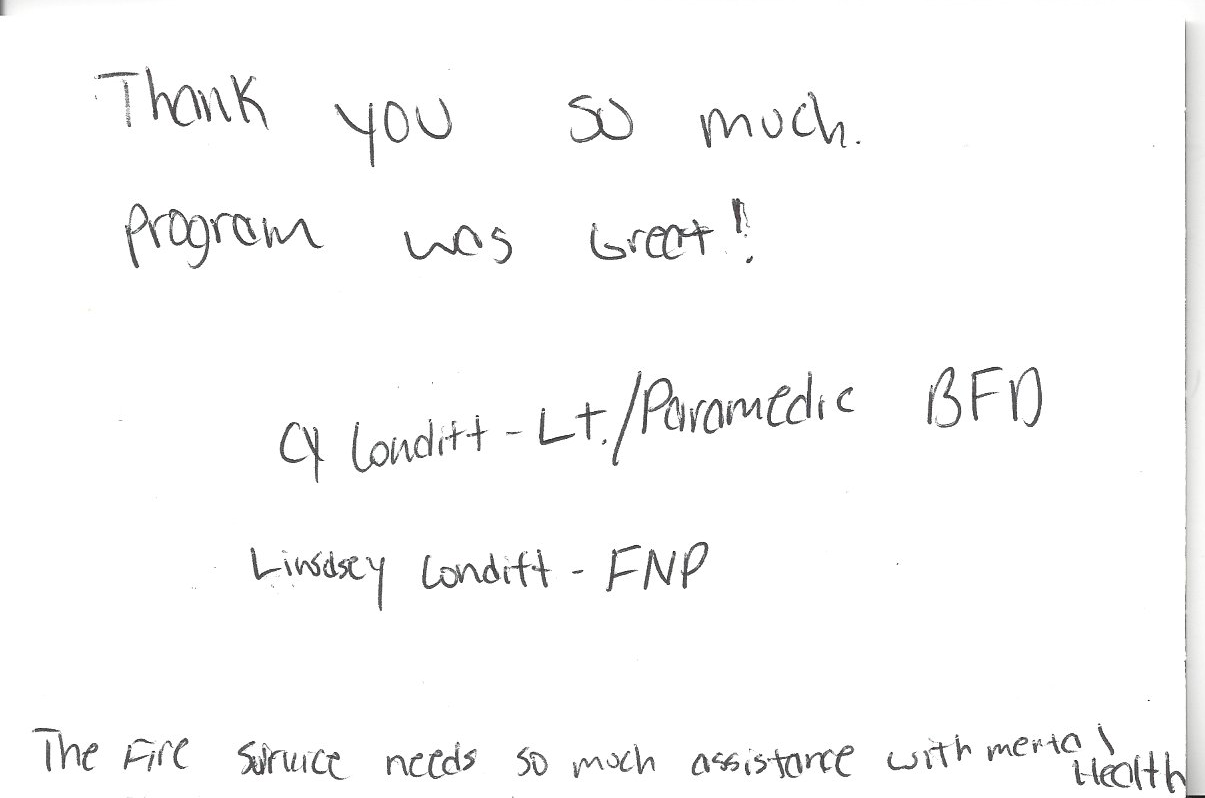 Thank you so much.
program was Great!
CY Conditt - Lt./Paramedic BFD
Linsdsey Conditt - FNP
The Fire Service needs so much assistance with mental
Health